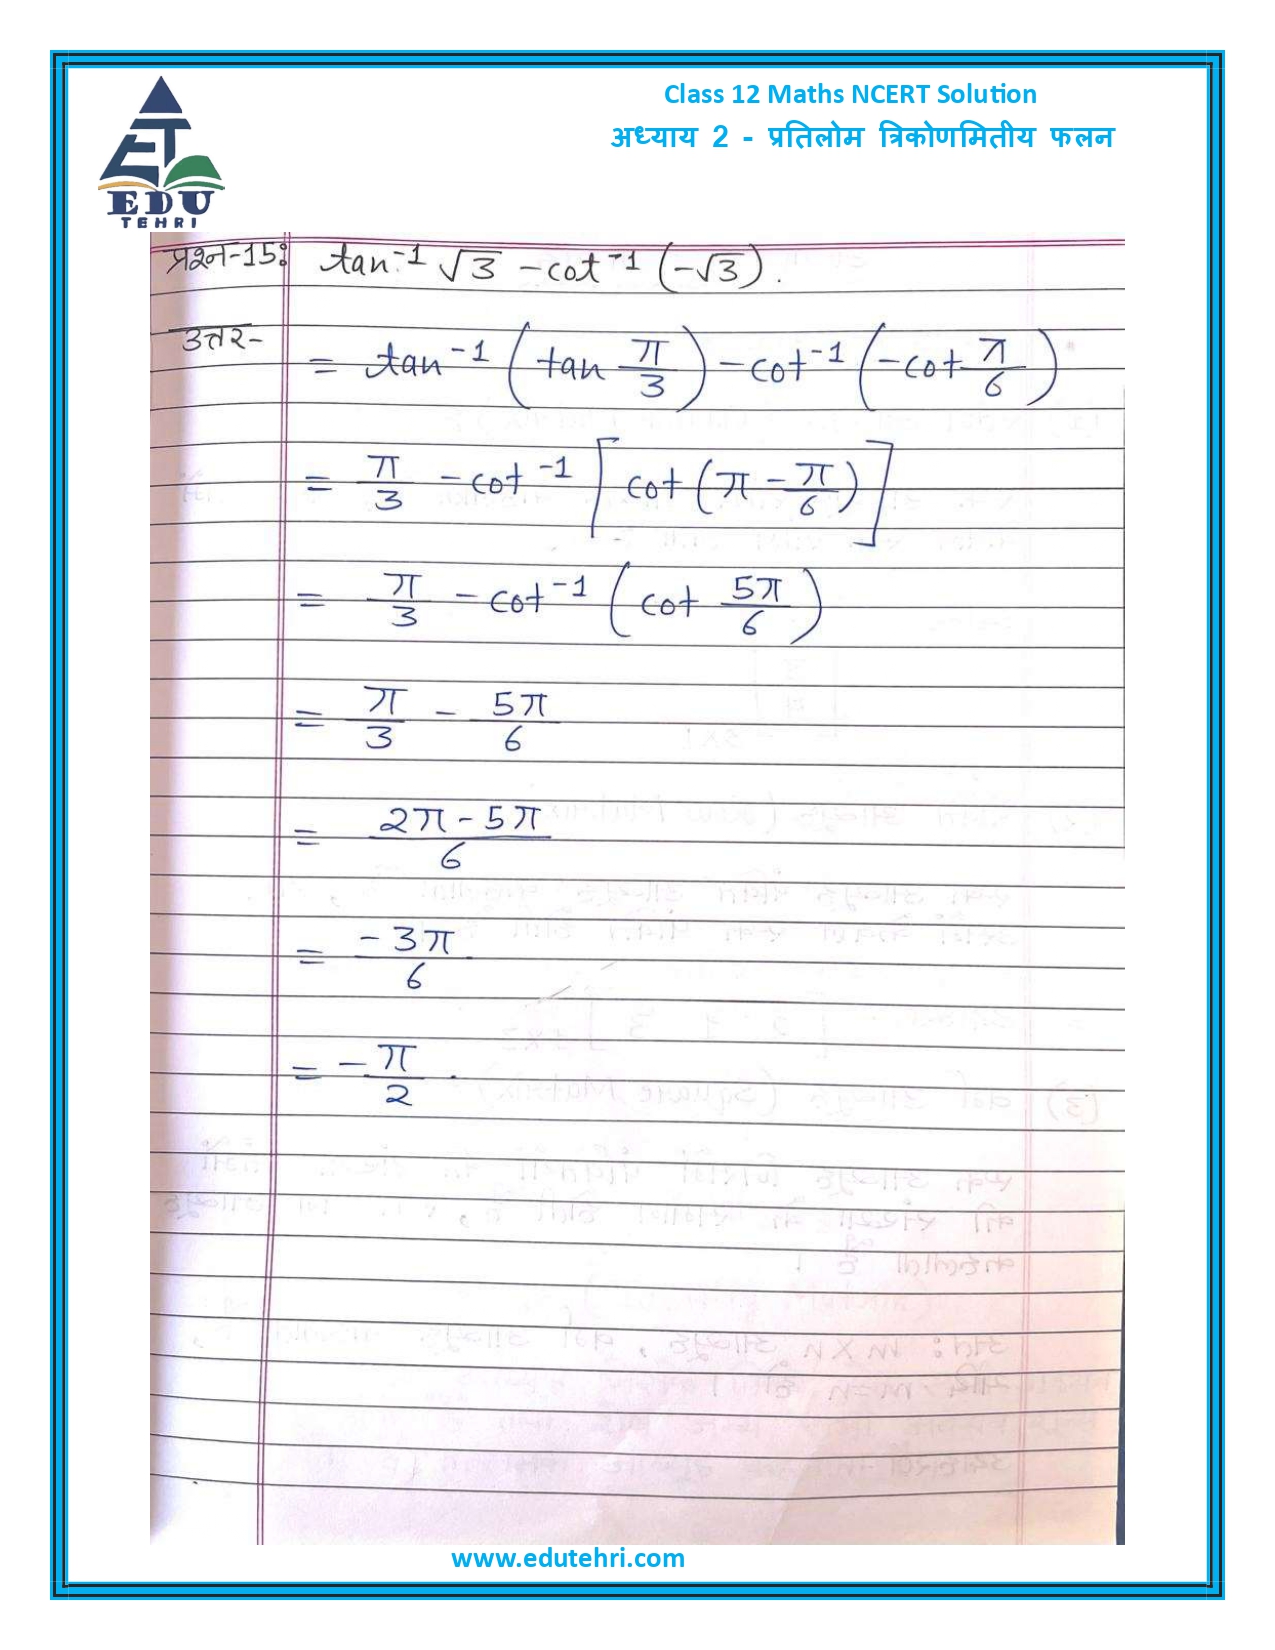 Class 12 Maths NCERT Solution
अध्याय 2 - प्रतिलोम त्रिकोणमितीय फलन
EDU
TEHRI
प्रश्न-15: tan⁻¹ √3 - cot⁻¹ (-√3).
उत्तर- = tan⁻¹ (tan π/3) - cot⁻¹ (-cot π/6)
= π/3 - cot⁻¹ [cot (π - π/6)]
= π/3 - cot⁻¹ (cot 5π/6)
= π/3 - 5π/6
= 2π - 5π/6
= -3π/6
= -π/2.
www.edutehri.com